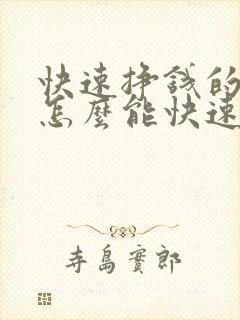 快速挣钱的
怎麼能快速
寺島實郎